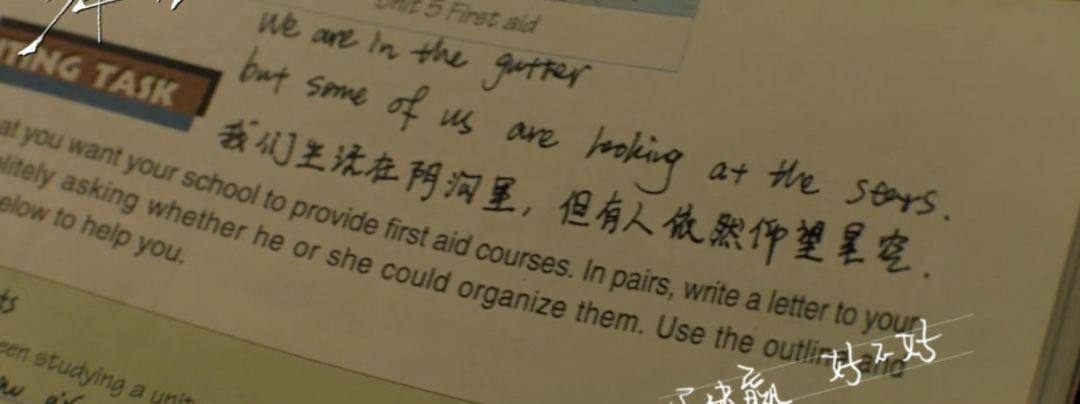 Unit 5 First aid
We are in the gutter
but some of us are looking at the stars.
我们生活在阴沟里，但有人依然仰望星空.
ITING TASK
at you want your school to provide first aid courses. In pairs, write a letter to your
litely asking whether he or she could organize them. Use the outline and
elow to help you.
een studying a unit
好不好